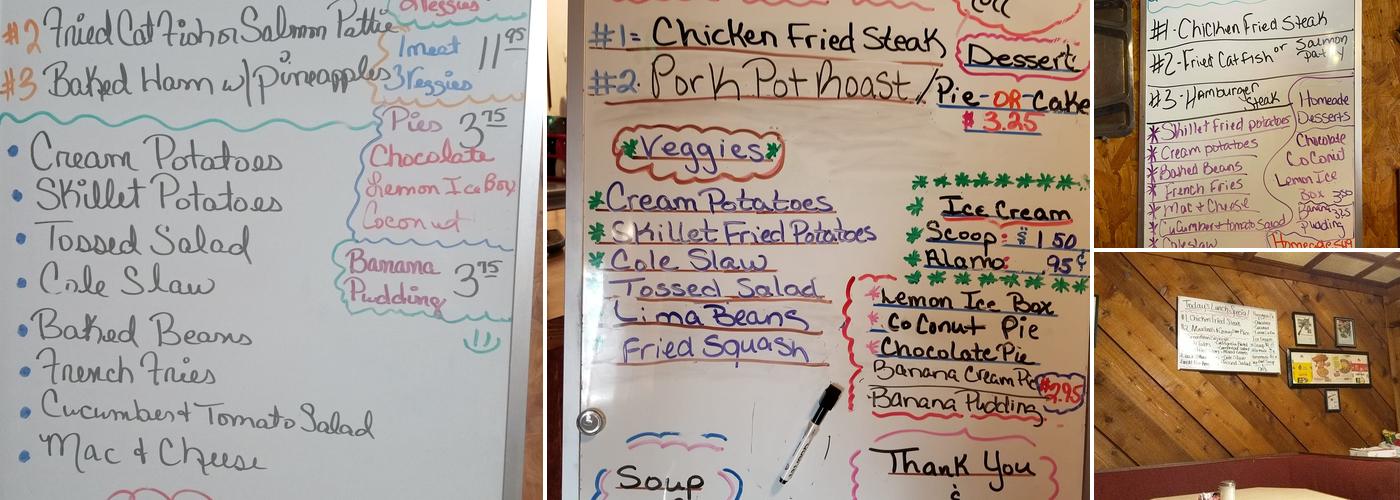 #2 Fried Catfish or Salmon Pattie
#3 Baked Ham w/ pineapples
Veggies
1 meat
3 Veggies
11 95
Pies 3 75
Chocolate
Lemon Ice Box
Coconut
Banana
Pudding 3 75
• Cream Potatoes
• Skillet Potatoes
• Tossed Salad
• Cole Slaw
• Baked Beans
• French Fries
• Cucumber & Tomato Salad
• Mac & Cheese
#1= Chicken Fried Steak
#2. Pork Pot Roast /
Dessert
Pie-OR-Cake
$ 3.25
Veggies
Cream Potatoes
Skillet Fried Potatoes
Cole Slaw
Tossed Salad
Lima Beans
Fried Squash
Ice Cream
Scoop: $ 1 50
Alamo: .95¢
Lemon Ice Box
CoConut Pie
Chocolate Pie
Banana Cream Pie
$2.95
Banana Pudding
Soup
Thank You
&
#1. Chicken Fried Steak
#2. Fried Catfish or Salmon
#3. Hamburger
Steak
Skillet Fried potatoes
Cream potatoes
Baked Beans
French Fries
Mac & Cheese
Cucumber & tomato Salad
Coleslaw
Homeade
Desserts
Chocolate
CoConut
Lemon Ice
Box 350
Banana 325
Pudding
Today's Lunch Special
#1 Chicken Fried Steak